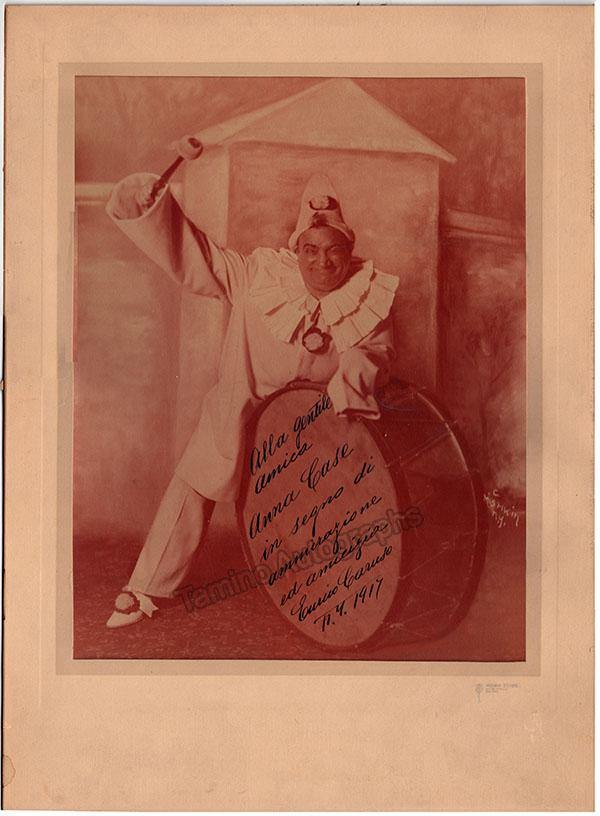 Alla gentile
amica
Anna Case
in segno di
ammirazione
ed amicizia
Enrico Caruso
N.Y. 1917
Tamino Autographs
Mishkin
N.Y.